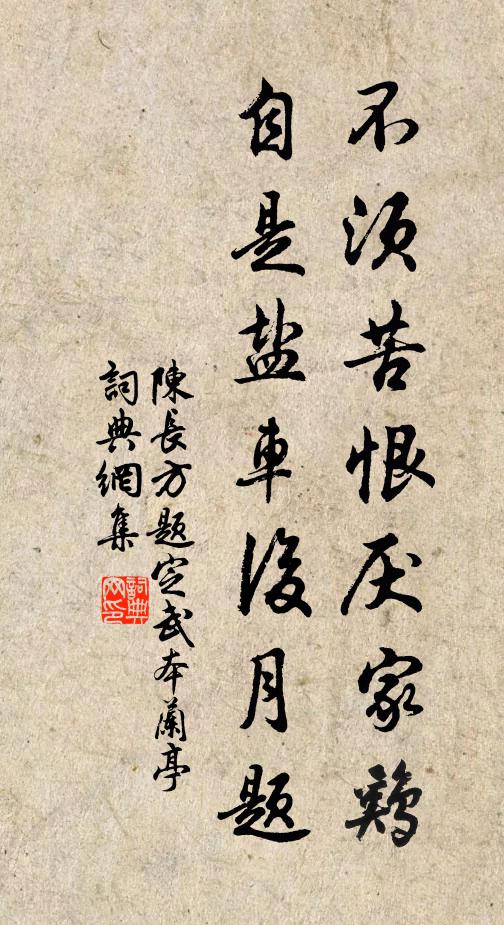 不須苦恨厌家鷄
自是盐車後月題
陳長方題定武本蘭亭
詞典網集
詞典文印